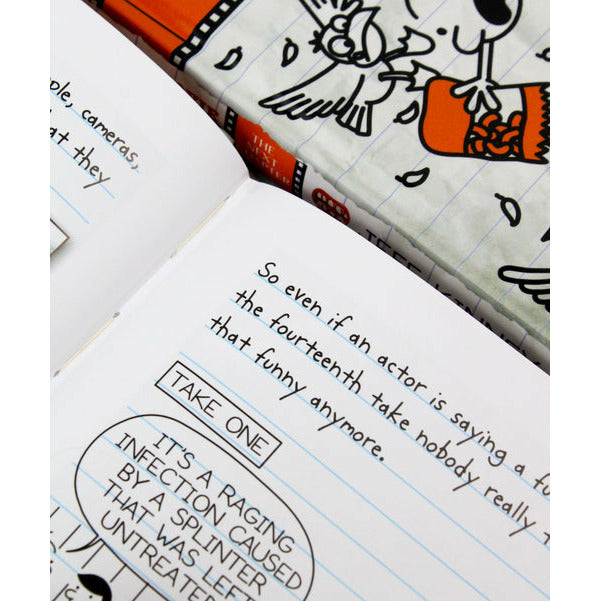 ple, cameras,
at they
THE
NEXT
JEFF KINNEY
So even if an actor is saying a fu
the fourteenth take nobody really t
that funny anymore.
TAKE ONE
IT'S A RAGING
INFECTION CAUSED
BY A SPLINTER
THAT WAS LEFT
UNTREATE